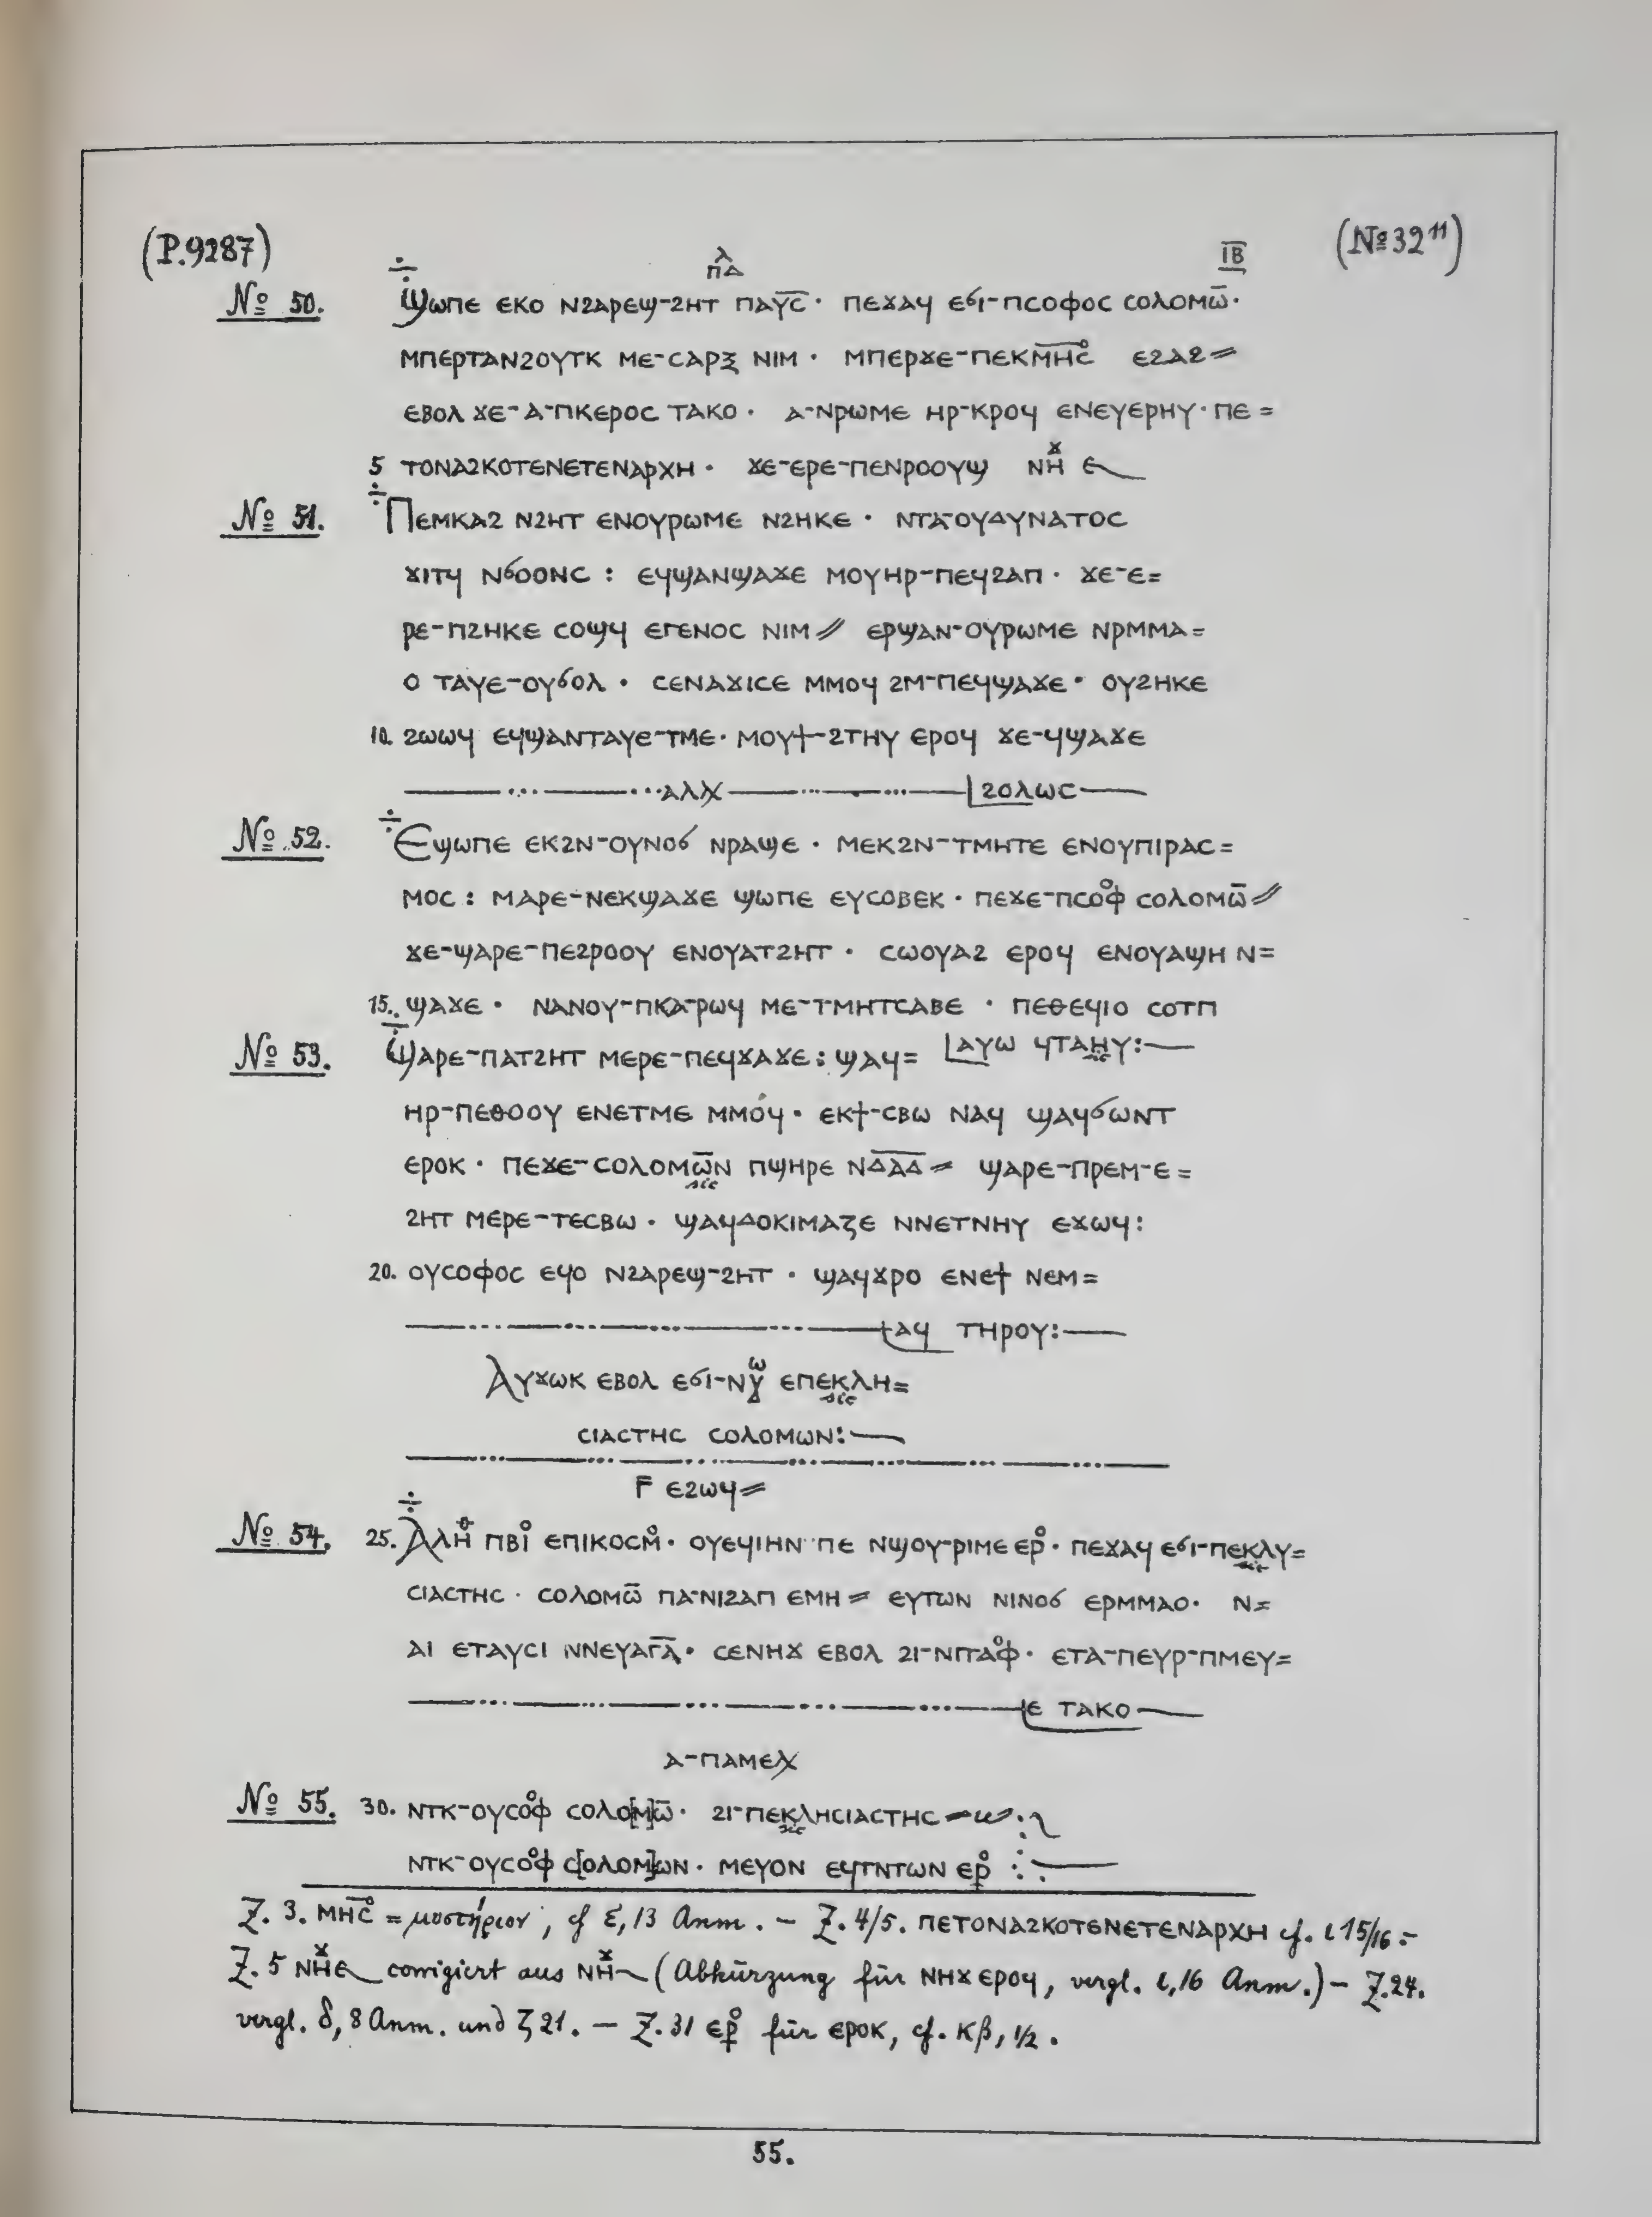 (P.9287) ⲡⲁⲗ ⲓ̅ⲃ̅ (№ 32¹¹)
№ 50. Ϣⲱⲡⲉ ⲉⲕⲟ ⲛϩⲁⲣⲉϣ-ϩⲏⲧ ⲡⲁⲩ̅ⲥ̅· ⲡⲉϫⲁϥ ⲉϭⲓ-ⲡⲥⲟⲫⲟⲥ ⲥⲟⲗⲟⲙⲱ̅·
ⲙⲡⲉⲣⲧⲁⲛϩⲟⲩⲧⲕ ⲙⲉ-ⲥⲁⲣⲝ ⲛⲓⲙ · ⲙⲡⲉⲣϫⲉ-ⲡⲉⲕⲙ̅ⲏ̅ⲥ̊ ⲉϩⲁϩ⸗
ⲉⲃⲟⲗ ϫⲉ-ⲁ-ⲡⲕⲉⲣⲟⲥ ⲧⲁⲕⲟ · ⲁ-ⲛⲣⲱⲙⲉ ⲏⲣ-ⲕⲣⲟϥ ⲉⲛⲉⲩⲉⲣⲏⲩ· ⲡⲉ =
5 ⲧⲟⲛⲁϩⲕⲟⲧⲉⲛⲉⲧⲉⲛⲁⲣⲭⲏ · ϫⲉ-ⲉⲣⲉ-ⲡⲉⲛⲣⲟⲟⲩϣ ⲛⲏϫ ⲉ
№ 51. Ⲡⲉⲙⲕⲁϩ ⲛϩⲏⲧ ⲉⲛⲟⲩⲣⲱⲙⲉ ⲛϩⲏⲕⲉ · ⲛⲧⲁ-ⲟⲩⲇⲩⲛⲁⲧⲟⲥ
ϫⲓⲧϥ ⲛϭⲟⲟⲛⲥ : ⲉϥϣⲁⲛϣⲁϫⲉ ⲙⲟⲩⲏⲣ-ⲡⲉϥϩⲁⲡ · ϫⲉ-ⲉ=
ⲣⲉ-ⲡϩⲏⲕⲉ ⲥⲟϣϥ ⲉⲅⲉⲛⲟⲥ ⲛⲓⲙ⸗ ⲉⲣϣⲁⲛ-ⲟⲩⲣⲱⲙⲉ ⲛⲣⲙⲙⲁ=
ⲟ ⲧⲁⲩⲉ-ⲟⲩϭⲟⲗ · ⲥⲉⲛⲁϫⲓⲥⲉ ⲙⲙⲟϥ ϩⲙ-ⲡⲉϥϣⲁϫⲉ· ⲟⲩϩⲏⲕⲉ
10. ϩⲱⲱϥ ⲉϥϣⲁⲛⲧⲁⲩⲉ-ⲧⲙⲉ· ⲙⲟⲩϯ-ϩⲧⲏⲩ ⲉⲣⲟϥ ϫⲉ-ϥϣⲁϫⲉ
ⲁⲗⲭ ϩⲟⲗⲱⲥ
№ 52. Ⲉϣⲱⲡⲉ ⲉⲕϩⲛ-ⲟⲩⲛⲟϭ ⲛⲣⲁϣⲉ · ⲙⲉⲕϩⲛ-ⲧⲙⲏⲧⲉ ⲉⲛⲟⲩⲡⲓⲣⲁⲥ=
ⲙⲟⲥ : ⲙⲁⲣⲉ-ⲛⲉⲕϣⲁϫⲉ ϣⲱⲡⲉ ⲉⲩⲥⲟⲃⲉⲕ · ⲡⲉϫⲉ-ⲡⲥⲟⲫ̊ ⲥⲟⲗⲟⲙⲱ̅⸗
ϫⲉ-ϣⲁⲣⲉ-ⲡⲉϩⲣⲟⲟⲩ ⲉⲛⲟⲩⲁⲧϩⲏⲧ · ⲥⲱⲟⲩⲁϩ ⲉⲣⲟϥ ⲉⲛⲟⲩⲁϣⲏ ⲛ=
15. ϣⲁϫⲉ · ⲛⲁⲛⲟⲩ-ⲡⲕⲁ-ⲣⲱϥ ⲙⲉ-ⲧⲙⲏⲧⲥⲁⲃⲉ · ⲡⲉⲑⲉϥⲓⲟ ⲥⲟⲧⲡ
ⲁⲩⲱ ϥⲧⲁⲏⲩ:
№ 53. Ϣⲁⲣⲉ-ⲡⲁⲧϩⲏⲧ ⲙⲉⲣⲉ-ⲡⲉϥϫⲁϫⲉ: ϣⲁϥ=
ⲏⲣ-ⲡⲉⲑⲟⲟⲩ ⲉⲛⲉⲧⲙⲉ ⲙⲙⲟϥ · ⲉⲕϯ-ⲥⲃⲱ ⲛⲁϥ ϣⲁϥϭⲱⲛⲧ
ⲉⲣⲟⲕ · ⲡⲉϫⲉ-ⲥⲟⲗⲟⲙⲱ̅ⲛ ⲡϣⲏⲣⲉ ⲛⲇ̅ⲁ̅ⲇ̅⸗ ϣⲁⲣⲉ-ⲡⲣⲉⲙ-ⲉ=
ϩⲏⲧ ⲙⲉⲣⲉ-ⲧⲉⲥⲃⲱ · ϣⲁϥⲇⲟⲕⲓⲙⲁⲍⲉ ⲛⲛⲉⲧⲛⲏⲩ ⲉϫⲱϥ:
20. ⲟⲩⲥⲟⲫⲟⲥ ⲉϥⲟ ⲛϩⲁⲣⲉϣ-ϩⲏⲧ · ϣⲁϥϫⲣⲟ ⲉⲛⲉϯ ⲛⲉⲙ=
ⲁϥ ⲧⲏⲣⲟⲩ:
Ⲁⲩϫⲱⲕ ⲉⲃⲟⲗ ⲉϭⲓ-ⲛⲯⲱ ⲉⲡⲉⲕⲗⲏ=
ⲥⲓⲁⲥⲧⲏⲥ ⲥⲟⲗⲟⲙⲱⲛ:
ⲉϩⲱϥ⸗
№ 54. 25. Ⲁⲗⲏⲑ ⲡⲃⲓ̊ ⲉⲡⲓⲕⲟⲥⲙ̊· ⲟⲩⲉϥⲓⲏⲛ ⲡⲉ ⲛϣⲟⲩ-ⲣⲓⲙⲉ ⲉⲣ̊· ⲡⲉϫⲁϥ ⲉϭⲓ-ⲡⲉⲕⲗⲩ=
ⲥⲓⲁⲥⲧⲏⲥ · ⲥⲟⲗⲟⲙⲱ̅ ⲡⲁ-ⲛⲓϩⲁⲡ ⲉⲙⲏ⸗ ⲉⲩⲧⲱⲛ ⲛⲓⲛⲟϭ ⲉⲣⲙⲙⲁⲟ· ⲛ=
ⲁⲓ ⲉⲧⲁⲩⲥⲓ ⲛⲛⲉⲩⲁⲅ̅ⲁ̅· ⲥⲉⲛⲏϫ ⲉⲃⲟⲗ ϩⲓ-ⲛⲓⲧⲁⲫ̊· ⲉⲧⲁ-ⲡⲉⲩⲣ-ⲡⲙⲉⲩ=
ⲉ ⲧⲁⲕⲟ
ⲁ-ⲡⲁⲙⲉⲭ
№ 55. 30. ⲛⲧⲕ-ⲟⲩⲥⲟⲫ̊ ⲥⲟⲗⲟ[ⲙ]ⲱ̅· ϩⲓ-ⲡⲉⲕⲗⲏⲥⲓⲁⲥⲧⲏⲥ
ⲛⲧⲕ-ⲟⲩⲥⲟⲫ̊ ⲥ[ⲟⲗⲟⲙ]ⲱⲛ· ⲙⲉⲩⲟⲛ ⲉϥⲧⲛⲧⲱⲛ ⲉⲣ̊ :·
Z. 3. ⲙⲏⲥ̊ = μυστήριον, cf ε, 13 Anm. – Z. 4/5. ⲡⲉⲧⲟⲛⲁϩⲕⲟⲧⲉⲛⲉⲧⲉⲛⲁⲣⲭⲏ cf. ι 15/16 –
Z. 5 ⲛⲏϫⲉ corrigiert aus ⲛⲏϫ (Abkürzung für ⲛⲏϫ ⲉⲣⲟϥ, vergl. ι, 16 Anm.) – Z. 24.
vergl. δ, 8 Anm. und ζ 21. – Z. 31 ⲉⲣ̊ für ⲉⲣⲟⲕ, cf. κβ, 1/2.
55.